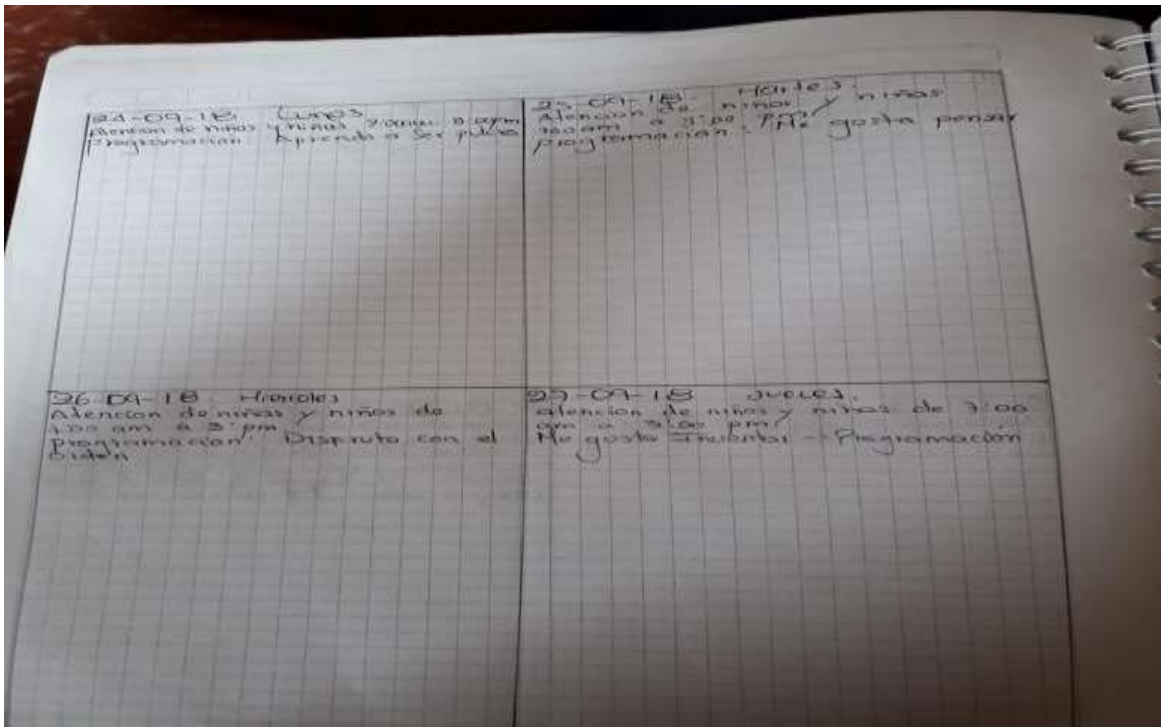 24-09-18 Lunes
Atencion de niños y niñas
programacion Aprendo a ser pulcro
25-09-18 Martes
Atencion de niños y niñas
7:00 am a 3:00 pm
programacion: Me gusta pensar
26-09-18 Miercoles
Atencion de niñas y niños de
7:00 am a 3: pm
programacion" Dispruto con el
orden
27-09-18 Jueves.
atencion de niños y niñas de 7:00
am a 3:00 pm/
Me gusta Inventar - Programación